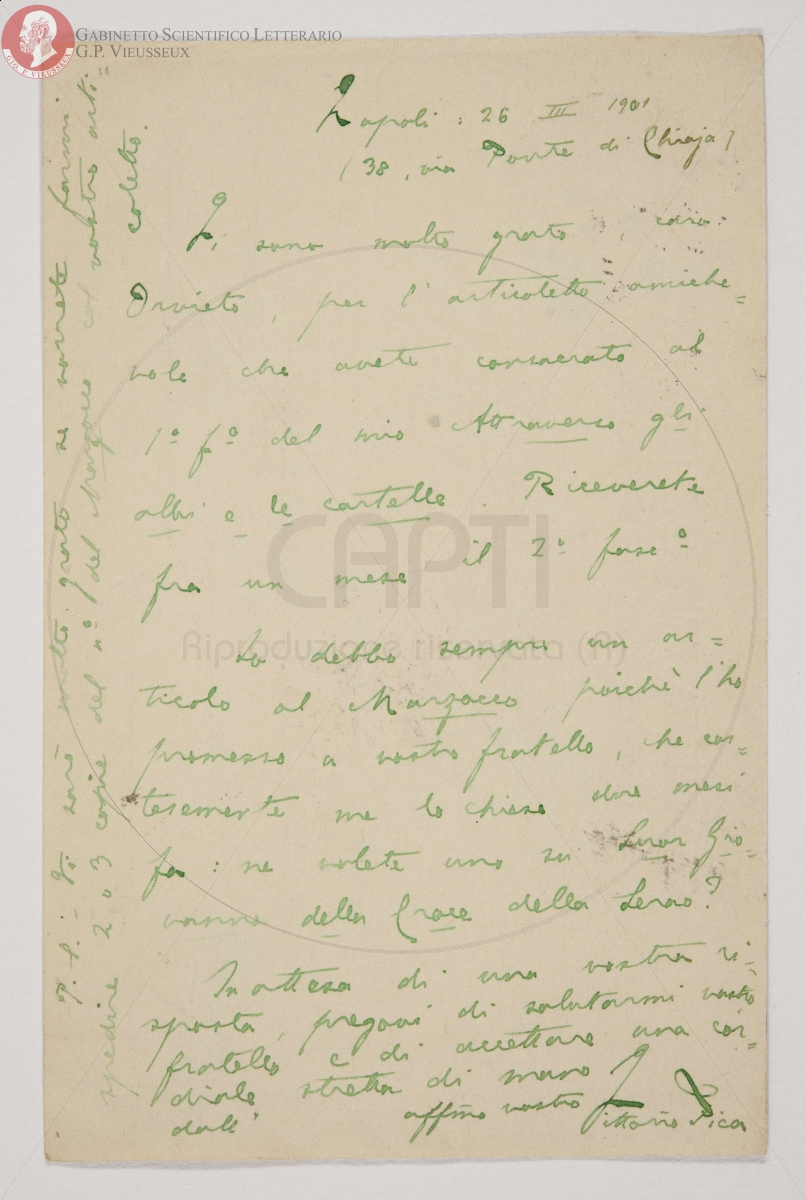 GABINETTO SCIENTIFICO LETTERARIO
G.P. VIEUSSEUX
GIO. P. VIEUSSEUX
Napoli : 26 III 1901
(38, via Ponte di Chiaja)
Vi sono molto grato, caro
Orvieto, per l'articoletto amiche=
vole che avete consacrato al
1º fº del mio Attraverso gli
albi e le cartelle. Riceverete
fra un mese il 2º fascº
Io debbo sempre un ar=
ticolo al Marzocco, poichè l'ho
promesso a vostro fratello, che cor=
tesemente me lo chiese due mesi
fa : ne volete uno su Suor Gio=
vanna della Croce della Serao?
In attesa di una vostra ri=
sposta, pregovi di salutarmi vostro
fratello e di accettare una cor=
diale stretta di mano
dall' affmo vostro Vittorio Pica
P.S. - Vi sarò molto grato se vorrete farmi
spedire 2 o 3 copie del nº del Marzocco col vostro arti=
coletto.
CAPTI
Riproduzione riservata (R)